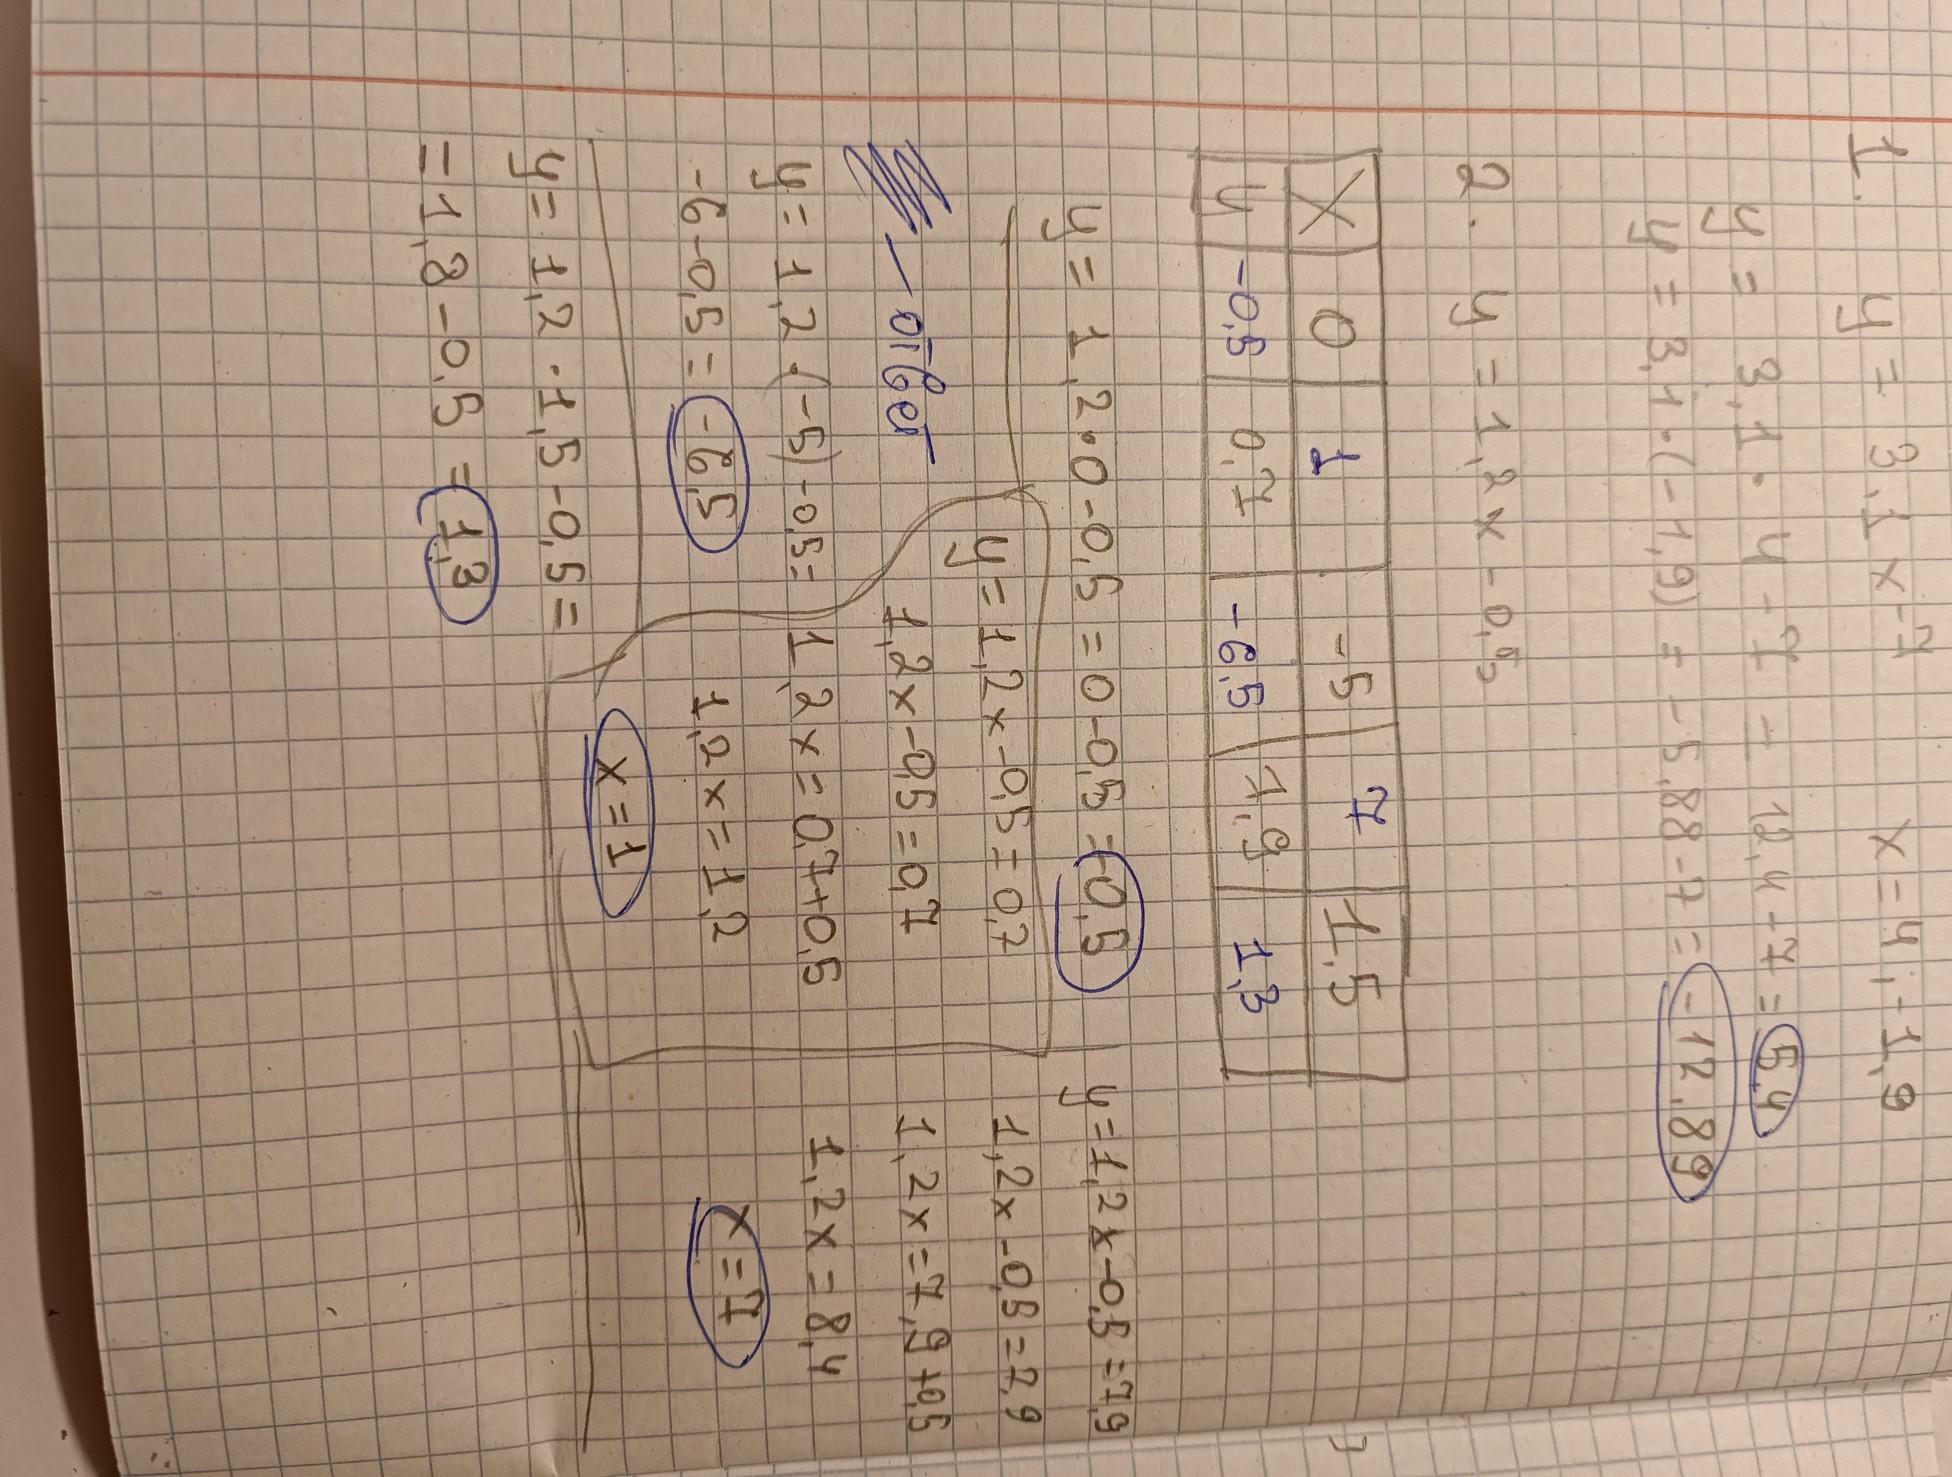 1. y = 3,1x-7 x=4; -1,9
y = 3,1 · 4 - 7 = 12,4 - 7 = 5,4
y = 3,1·(-1,9) = -5,88-7 = -12,89
2. y = 1,2x - 0,5
X 0 1 -5 7 1,5
y -0,5 0,7 -6,5 7,9 1,3
y = 1,2·0-0,5 = 0-0,5 = -0,5
y=1,2x-0,5=0,7
1,2x-0,5=0,7
1,2x=0,7+0,5
1,2x=1,2
x=1
y=1,2x-0,5=7,9
1,2x-0,5=7,9
1,2x=7,9+0,5
1,2x=8,4
x=7
- ответ
y=1,2·(-5)-0,5=
-6-0,5= -6,5
y=1,2·1,5-0,5=
=1,8-0,5=1,3